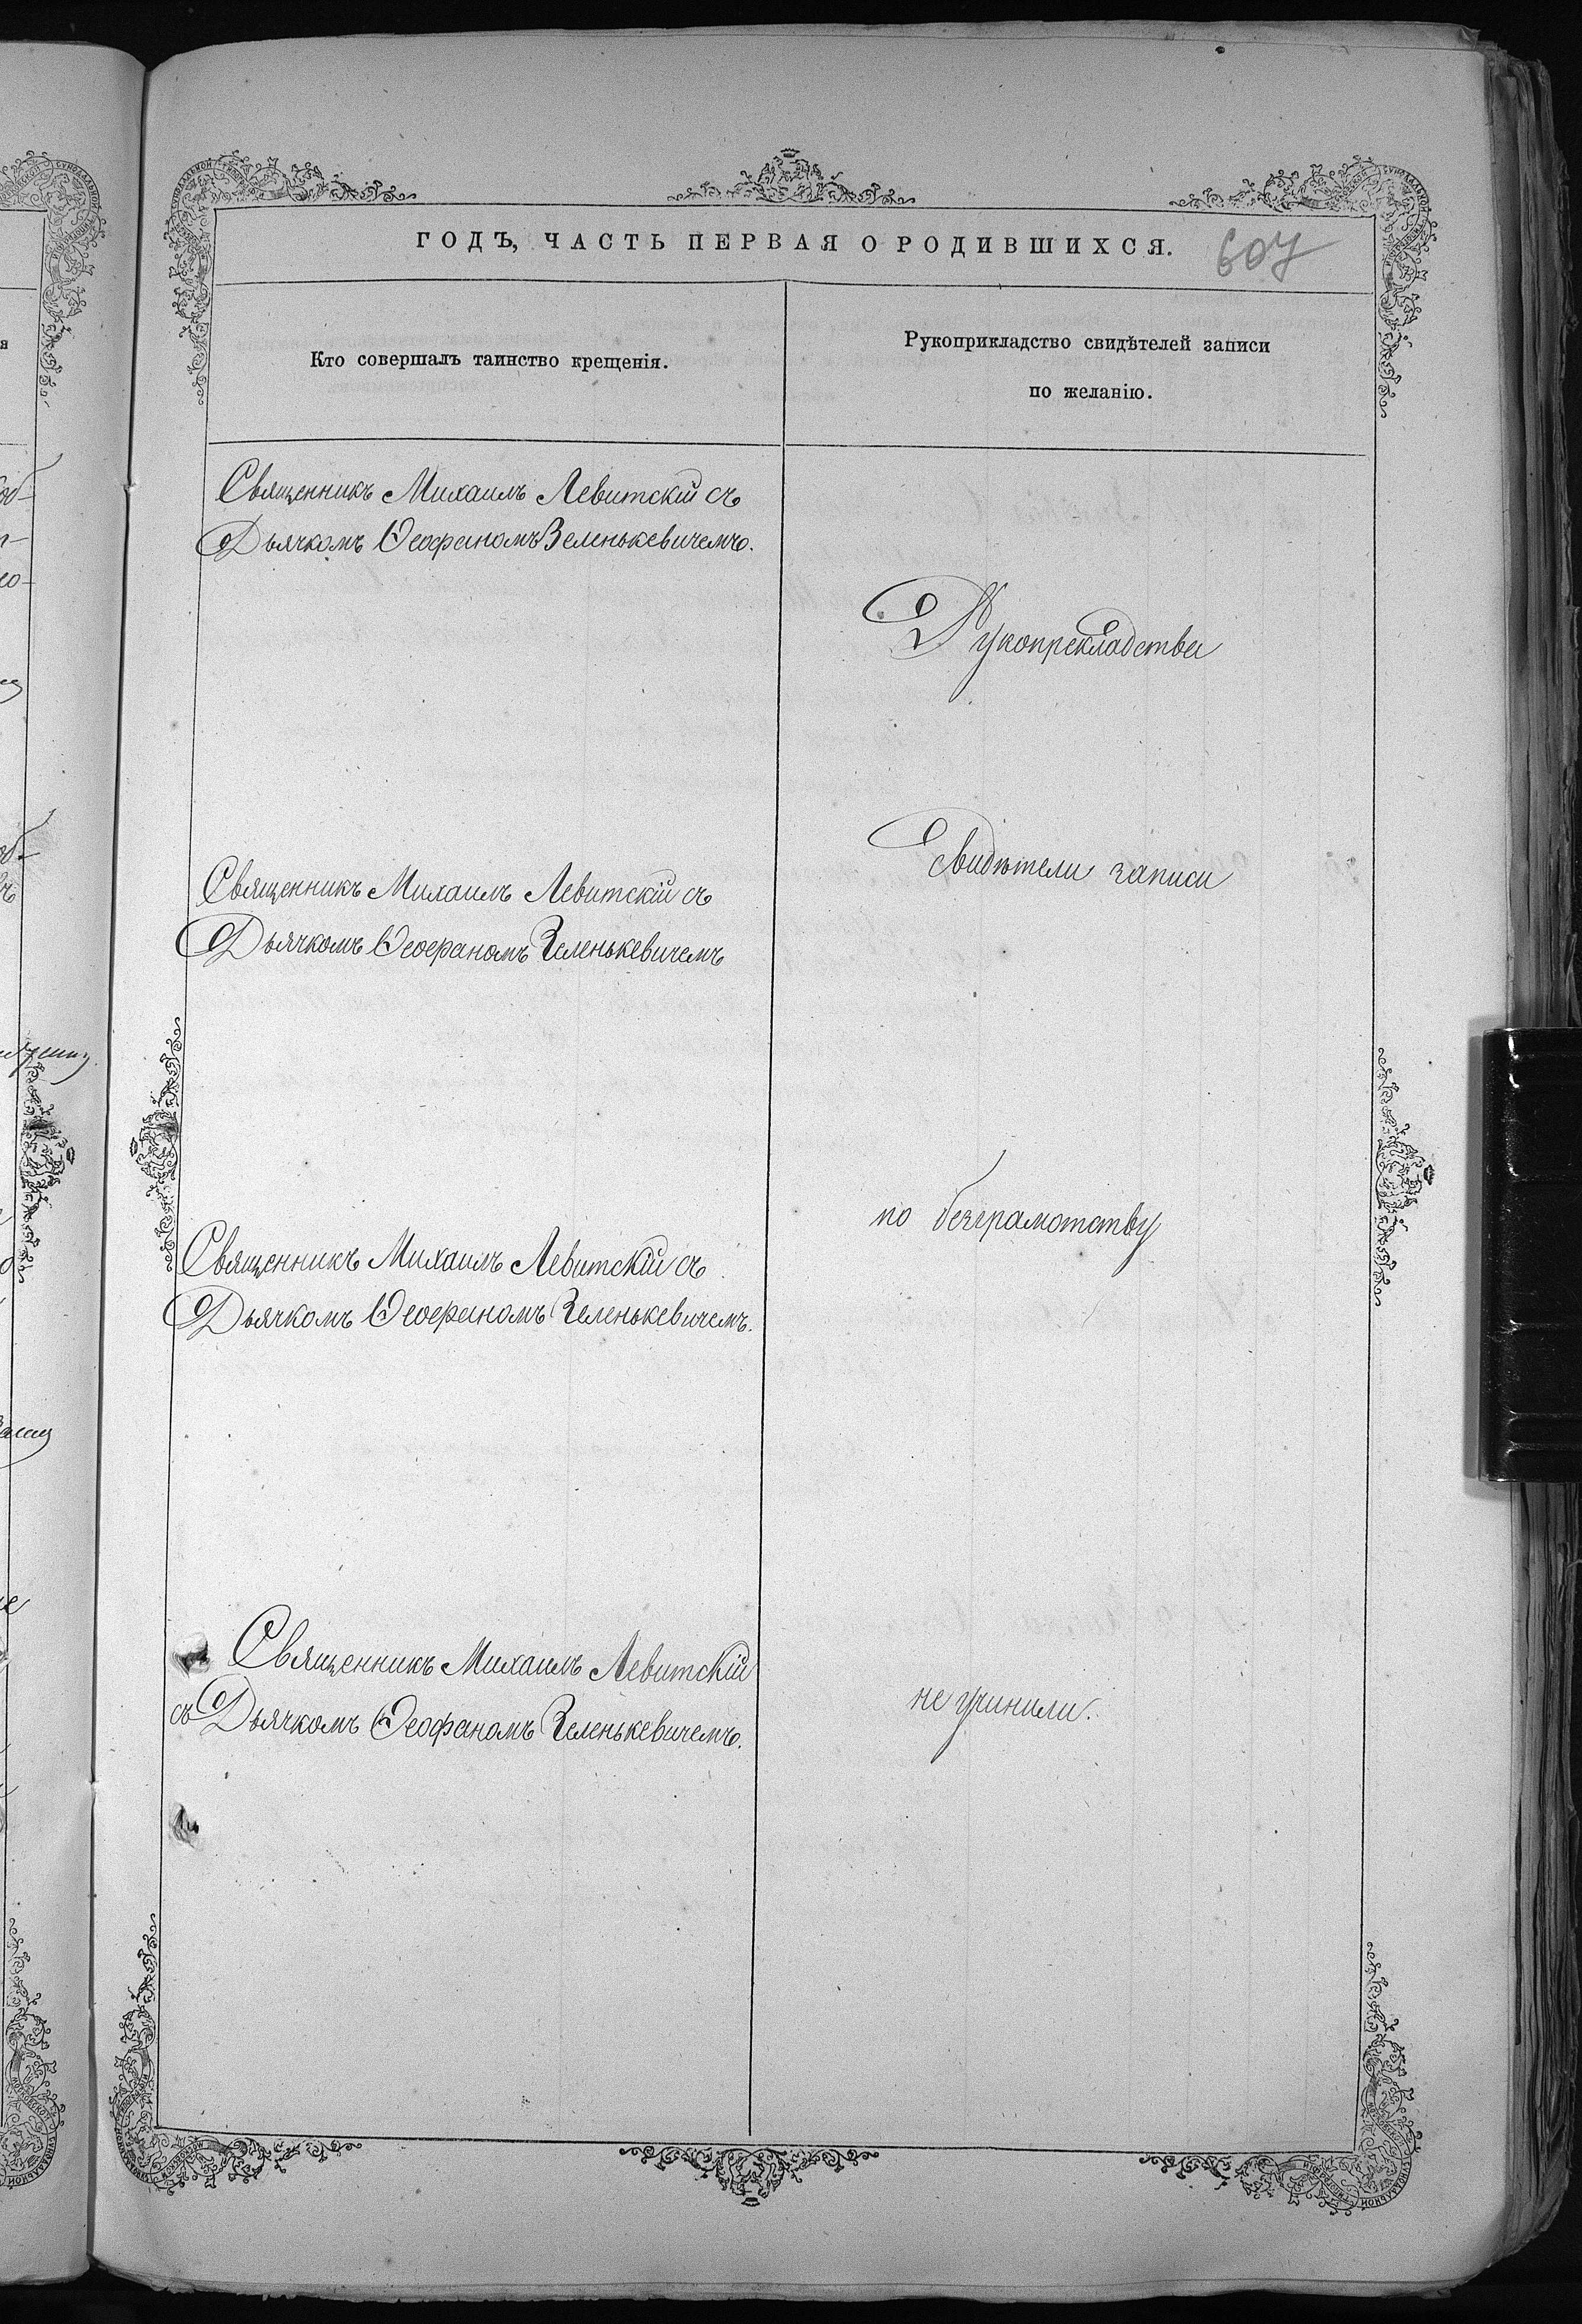 ГОДЪ, ЧАСТЬ ПЕРВАЯ О РОДИВШИХСЯ.
607
Кто совершалъ таинство крещенія.
Рукоприкладство свидѣтелей записи
по желанію.
Священникъ Михаилъ Левитскій съ
Дьячкомъ Ѳеофаномъ Зеленькевичемъ.
Рукопрекладства
Священникъ Михаилъ Левитскій съ
Дьячкомъ Ѳеофаномъ Зеленькевичемъ
свидѣтели записи
Священникъ Михаилъ Левитскій съ
Дьячкомъ Ѳеофаномъ Зеленькевичемъ.
по безграмотству
Священникъ Михаилъ Левитскій
съ Дьячкомъ Ѳеофаномъ Зеленькевичемъ.
не учинили.